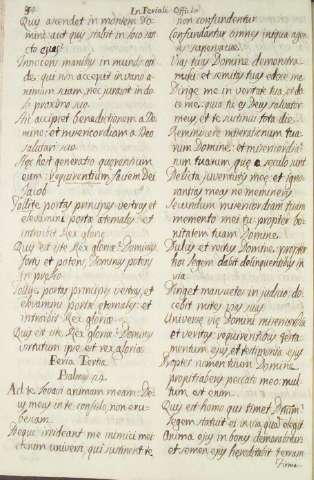 In Feriale Officio
Quis ascendet in montem Do
mini: aut quis stabit in loco san
cto eius:
Innocens manibus et mundo cor
de, qui non accepit in vano a
nimam suam, nec juravit in do
lo proximo suo.
Hic accipiet benedictionem a Do
mino: et misericordiam a Deo
salutari suo
Hec est generatio querentium
eum: requirentium faciem Dei
Jacob
Tollite portas principes vestras et
elevamini portæ æternales: et
introibit Rex gloriæ
Quis est iste Rex gloriæ: Dominus
fortis et potens, Dominus potens
in prælio
Tollite portas principes vestras, et
elevamini portæ eternales: et
introibit Rex gloriæ
Quis est iste Rex gloriæ: Dominus
virtutum ipse est rex gloriæ
Feria Tertia
Psalmus 24
Ad te levavi animam meam: De
us meus in te confido, non eru
bescam.
Neque irrideant me inimici mei:
etenim universi, qui sustinent te
non confundentur
Confundantur omnes iniqua agen
tes supervacue.
Vias tuas Domine demonstra
mihi: et semitas tuas edoce me
Dirige me in veritate tua, et do
ce me, quia tu es Deus salvator
meus, et te sustinui tota die.
Reminiscere miserationum tua
rum Domine: et misericordia
rum tuarum, que a seculo sunt
Delicta juventutis mee: et igno
rantias meas ne memineris
Secundum misericordiam tuam
memento mei tu: propter bo
nitatem tuam Domine.
Dulcis et rectus Domine: propter
hoc legem dabit delinquentibus in
via.
Diriget mansuetos in judicio: do
cebit mites vias suas
Universe vie Domini misericordia
et veritas: requirentibus testa
mentum ejus, et testimonia ejus
Propter nomen tuum Domine
propitiaberis peccato meo: mul
tum est enim.
Quis est homo qui timet Dnum:
Legem statuit ei in via, quam elegit
Anima ejus in bonis demorabitur:
et semen ejus hereditabit terram
Firma